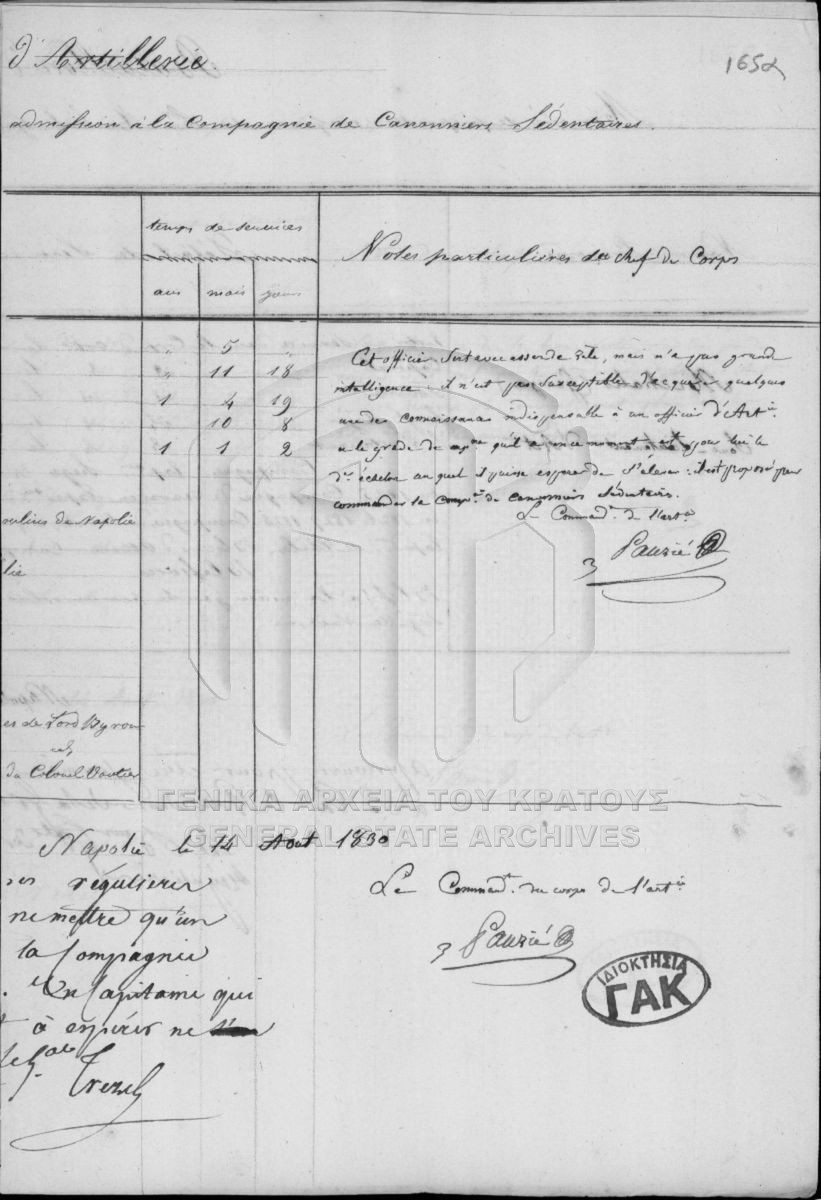 d'Artillerie.
1652
admission à la Compagnie de Canonniers Sédentaires.
temps de services
ans mois jours
Notes particulières du chef de Corps
" 5 "
" 11 18
1 4 19
10 8
1 1 2
Cet officier sert avec assez de zèle, mais n'a pas grand
intelligence; il n'est pas susceptible d'acquérir quelques
unes des connaissances indispensable à un officier d'Art.ie
le grade de qu'il a en ce moment est pour lui le
d.er échelon auquel il puisse espérer de s'élever: il est proposé pour
commander la comp.ie de canonniers Sédentaires.
Le Command.t de l'art.ie
Pauzié
de Napolie
lie
es de Lord Byron
du Colonel
ΓΕΝΙΚΑ ΑΡΧΕΙΑ ΤΟΥ ΚΡΑΤΟΥΣ
GENERAL STATE ARCHIVES
Napolie le 14 Aout 1830
Le Command.t du corps de l'art.ie
Pauzié
réguliers
ne mettre qu'un
la Compagnie
Un Capitaine qui
à espérer ne
Trezel
ΙΔΙΟΚΤΗΣΙΑ
ΓΑΚ